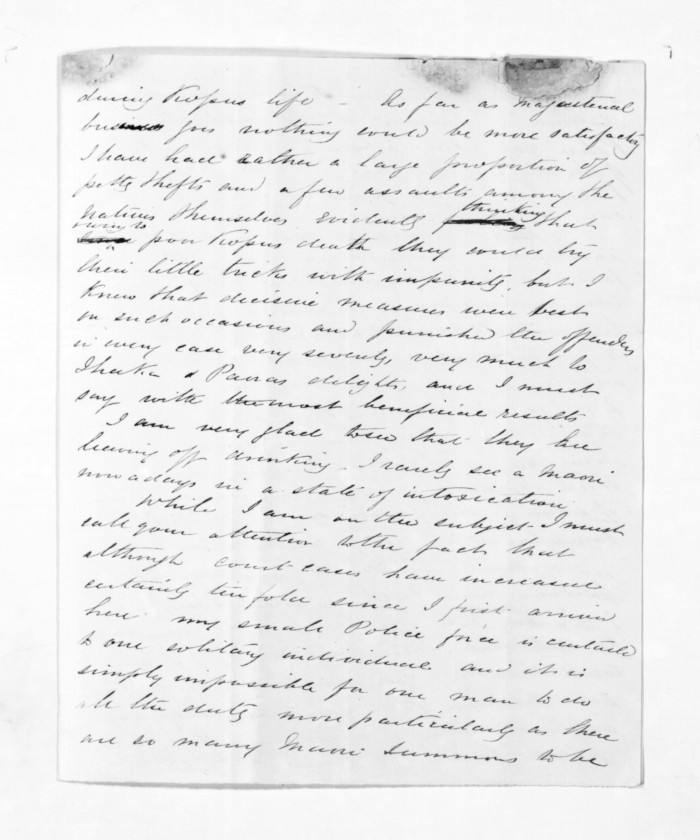 during Kopus life - As far as magisterial
business goes nothing could be more satisfactory
I have had rather a large proportion of
petty thefts and a few assaults among the
thinking
natives themselves evidently that
owing to
poor Kopus death they could try
their little tricks with impunity, but I
knew that decisive measures were best
on such occasions and punished the offenders
in every case very severely, very much to
Ihaka & Paoras delight, and I must
say with the most beneficial results
I am very glad to see that they are
leaving off drinking - I rarely see a Maori
now a days in a state of intoxication
While I am on the subject I must
call your attention to the fact that
although court cases have increased
certainly tenfold since I first arrived
here my small Police force is curtailed
to one solitary individual and it is
simply impossible for one man to do
all the duty more particularly as there
are so many Maori Summons to be